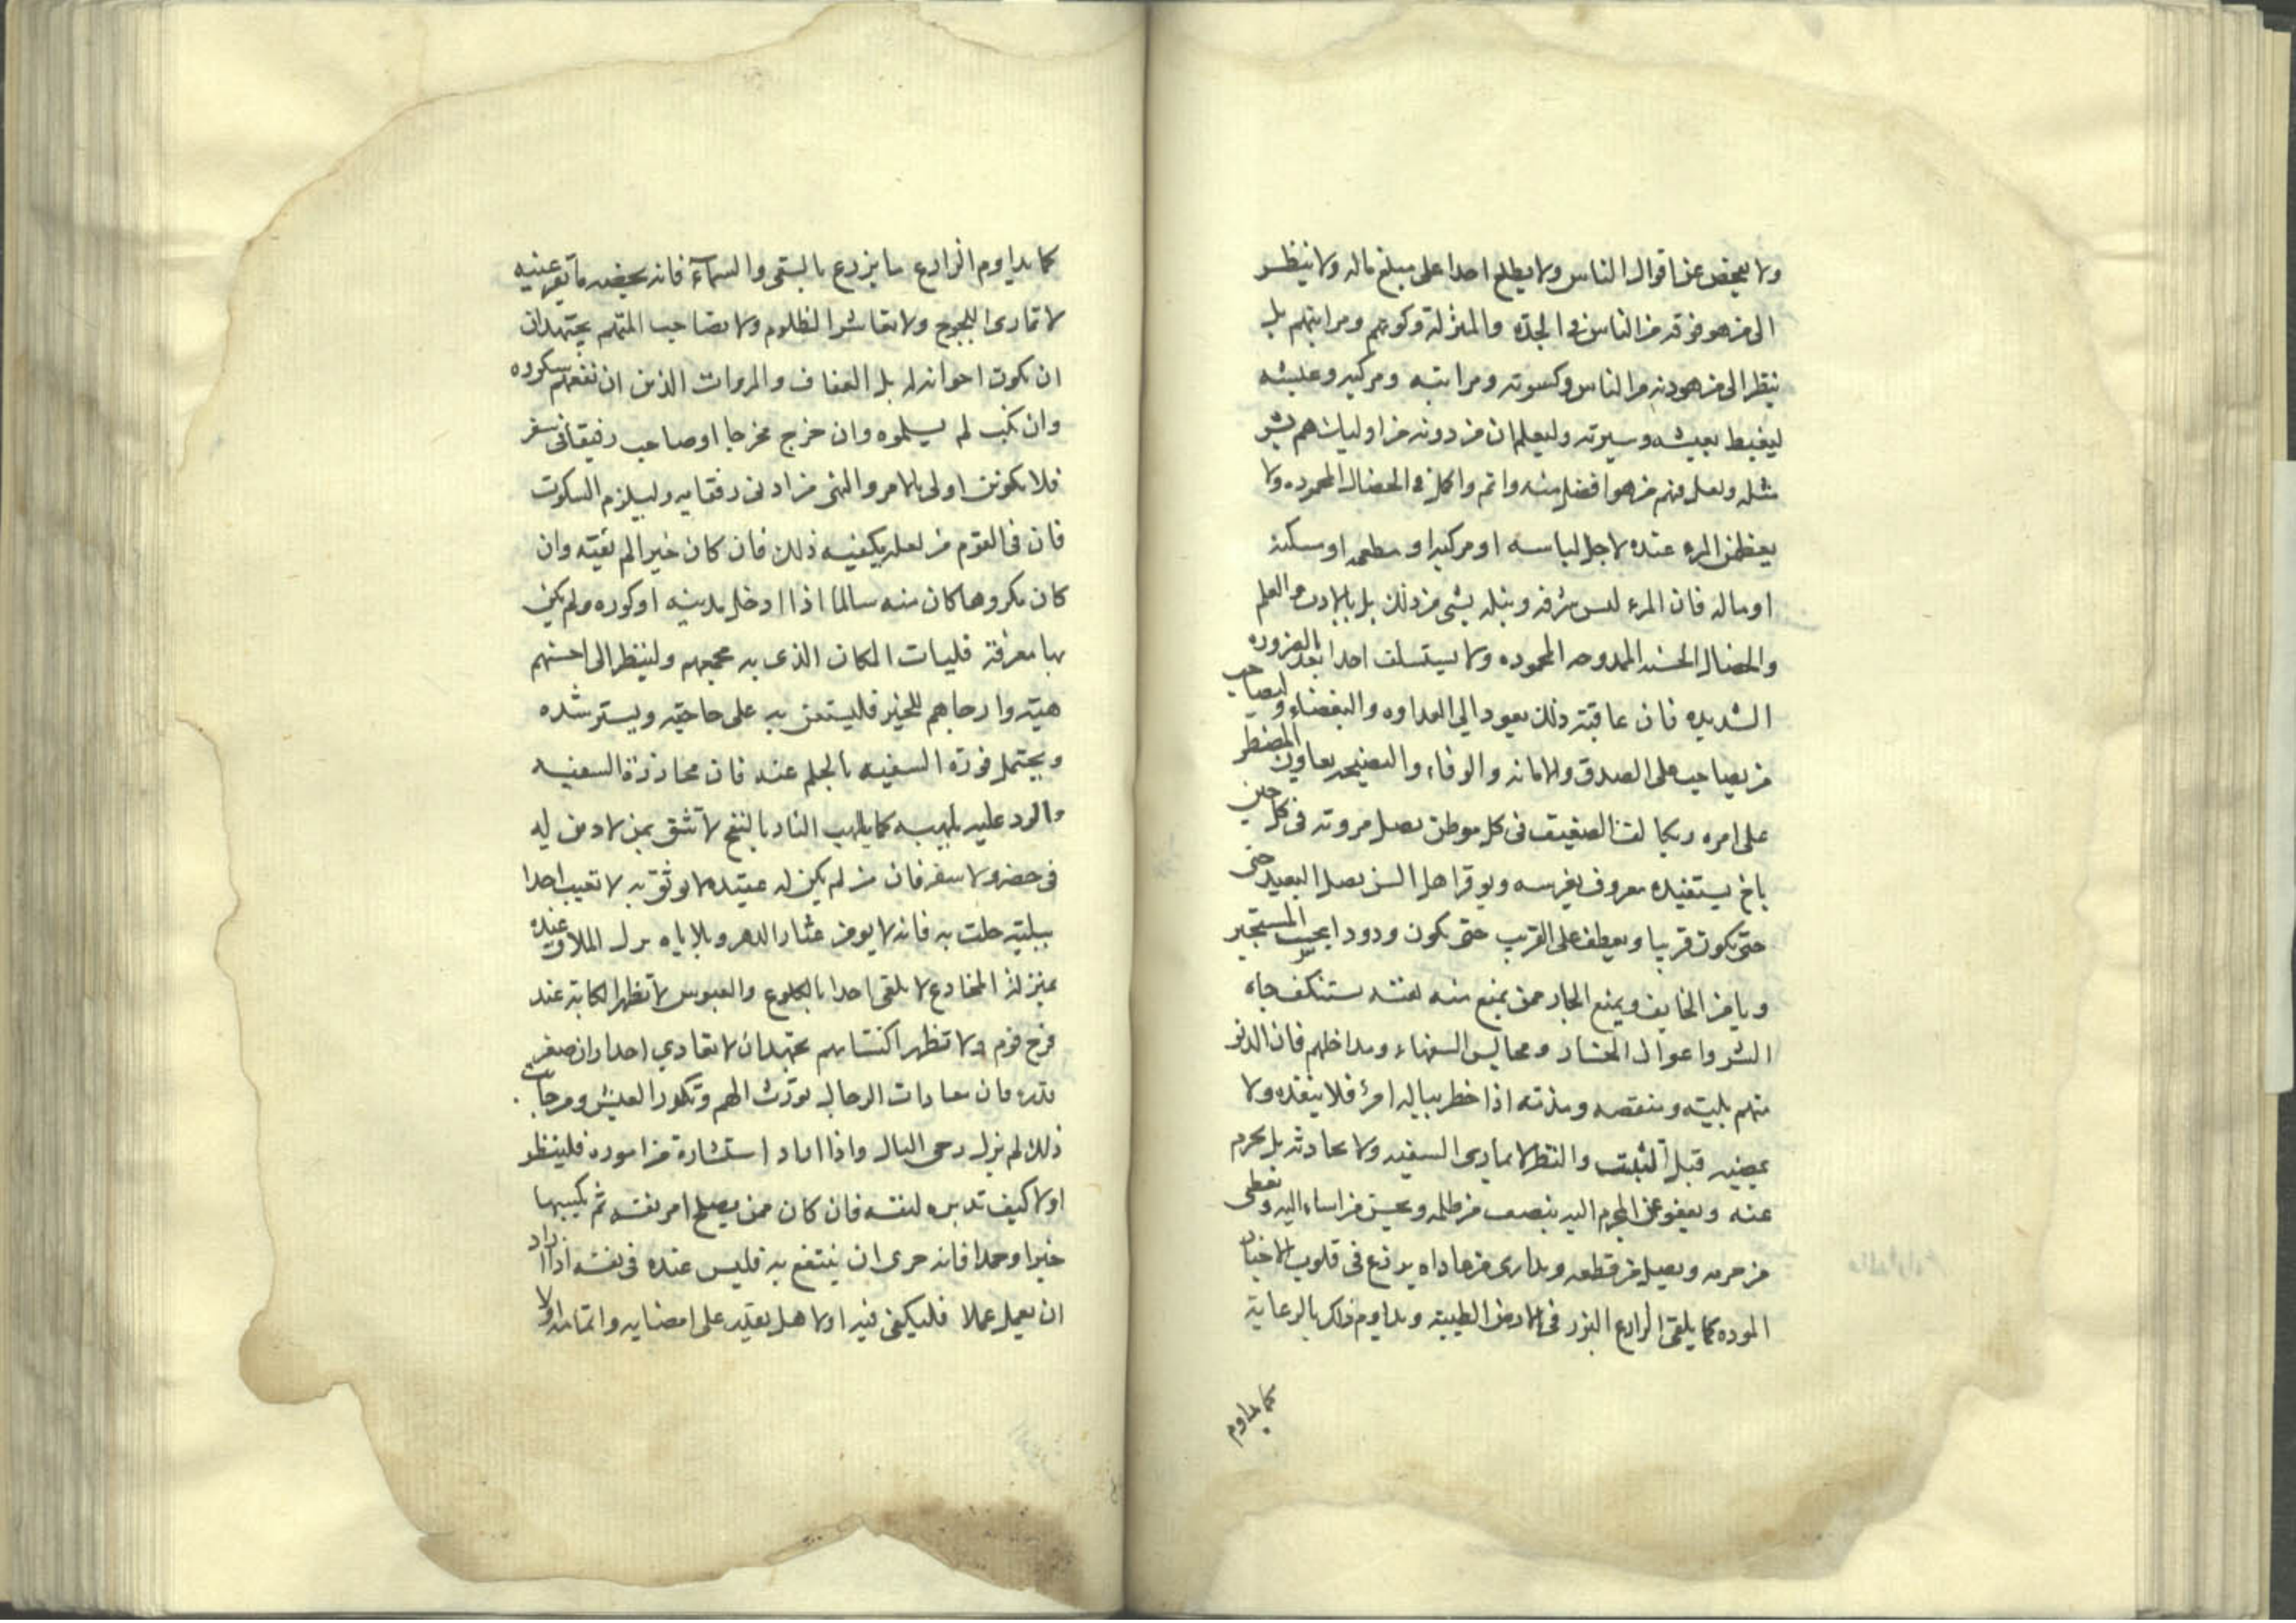 ولا يفحص عن اقوال الناس ولا يطلع احدا على مبلغ ماله ولا ينظر
الى من هو فوقه من الناس في الجدة والمنزلة وكونهم ومراتبهم بل
ينظر الى من هو دونه من الناس وكسوته ومراتبه ومركبه وعيشه
ليغبط بعيشه وسيرته وليعلم ان من دونه من اوليات هم بشر
مثله ولعل منهم من هو افضل منه واتم واكمل في الخصال المحموده ولا
يعظمن المرء عنده لاجل لباسه او مركبه او مطعمه او سكنه
او ماله فان المرء ليس شرفه ونبله بشى من ذلك بل بالادب والعلم
والخصال الحسنه الممدوحه المحموده ولا يستسلف احدا بعد الضروره
الشديده فان عاقبة ذلك يعود الي العداوه والبغضاء وليصاحب
من يصاحب على الصدق والامانه والوفاء والنصيحه يعاون المضطر
على امره ويجالف الضعيف في كل موطن يصل مروته في كل حين
باخ يستفيده معروف يغرسه ويوقر اهل السن يصل البعيد حتى
حتى يكون قريبا ويعطف على القريب حتى يكون ودودا يجيب المستجير
ويامن الخايف ويمنع الجار ممن يمنع منه نفسه يستنكف جاه
الشر واعوال الحشار ومجالس السفهاء ومداخلهم فان الدنو
منهم بلية ومنقصه ومذنه اذا خطر بباله امر فلا ينفذه ولا
يمضيه قبل التثبت والنظر لا يمارى السفيه ولا يحادثه بل يحرم
عنه ويعفو عن المجرم اليه ينصف من ظلمه ويحسن من اساء اليه ويعطى
من حرمه ويصل من قطعه ويدارى من عاداه يزرع في قلوب الاخيار
الموده كما يلقى الزارع البزر في الارض الطيبة ويداوم ذلك بالرعاية
كما يداوم
كما يداوم الزارع ما يزرع بالسقى والسمآء فانه يحيضه ما يغرعنيه
لا تمارى اللجوج ولا تعاشر الظلوم ولا تصاحب المتهم يجتهد ان
ان يكون اخوانه له بل العفاف والمروات الذين ان نفعهم شكروه
وان نكب لم يسلموه وان خرج مخرجا او صاحب رفيقا في سفر
فلا يكونن اولى بالامر والنهى من ادنى رفقايه وليلزم السكوت
فان في القوم من لعله يكفيه ذلك فان كان خيرا لم يفته وان
كان مكروها كان منه سالما اذا ادخل مدينه او كوره ولم يكن
بها معرفة فليات المكان الذى به مجمعهم ولينظر الى احسنهم
هيئة وارجاهم للخير فليستعن به على حاجته ويسترشده
ويحتمل فورة السفيه بالحلم عنه فان محاورة السفيه
والرد عليه يلهبه كما يلهب النار بالنفخ لا تثق بمن لا دين له
في حضر ولا سفر فان من لم يكن له عقيده لا يوثق به لا تعيب احدا
ببلية حلت به فانه لا يومن عثار الدهر وبلاياه نزل الملاق عنده
بمنزلة المخادع لا يلقى احدا بالكلوع والعبوس لا تظهر الكابة عند
فرح قوم ولا تظهر اكتئابهم يجتهد ان لا يعادي احدا وان صغر
قدره فان معادات الرجال تورث الهم وتكدر العيش ومن جانب
ذلك لم يزل رخى البال واذا اراد استشارة من اموره فلينظر
اولا كيف تدبيره لنفسه فان كان ممن يصلح امر نفسه ثم يكسبها
خيرا وحمدا فانه حرى ان ينتفع به فليس عنده في نفسه اذا اراد
ان يعمل عملا فليكفى فيه اولا هل يقدر على امضايه واتمامه اولا